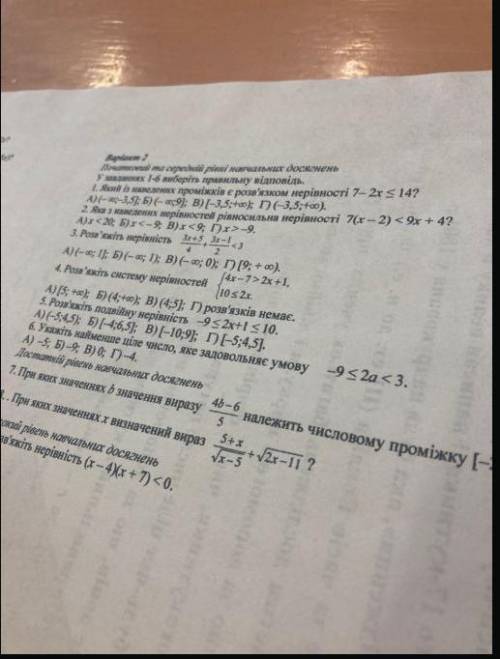 Варіант 2
Початковий та середній рівні навчальних досягнень
У завданнях 1-6 виберіть правильну відповідь.
1. Який із наведених проміжків є розв'язком нерівності 7– 2x ≤ 14?
А) (– ∞;–3,5]; Б) (– ∞;9]; В) [–3,5;+∞); Г) (–3,5;+∞).
2. Яка з наведених нерівностей рівносильна нерівності 7(x – 2) < 9x + 4?
А) x < 20; Б) x < – 9; В) x < 9; Г) x > –9.
3. Розв'яжіть нерівність (3x+5)/4 + (3x–1)/2 < 3
А) (– ∞; 1]; Б) (– ∞; 1); В) (– ∞; 0); Г) [9; + ∞).
4. Розв'яжіть систему нерівностей { 4x – 7 > 2x + 1, 10 ≤ 2x.
А) [5; +∞); Б) (4;+∞); В) (4;5]; Г) розв'язків немає.
5. Розв'яжіть подвійну нерівність –9 ≤ 2x+1 ≤ 10.
А) (–5;4,5); Б) [–4;6,5]; В) [–10;9]; Г) [–5;4,5].
6. Укажіть найменше ціле число, яке задовольняє умову –9 ≤ 2a < 3.
А) –5; Б) –9; В) 0; Г) –4.
Достатній рівень навчальних досягнень
7. При яких значеннях b значення виразу (4b–6)/5 належить числовому проміжку [–
. При яких значеннях x визначений вираз (5+x)/√(x–5) + √(2x–11) ?
рівень навчальних досягнень
в'яжіть нерівність (x – 4)(x + 7) < 0.